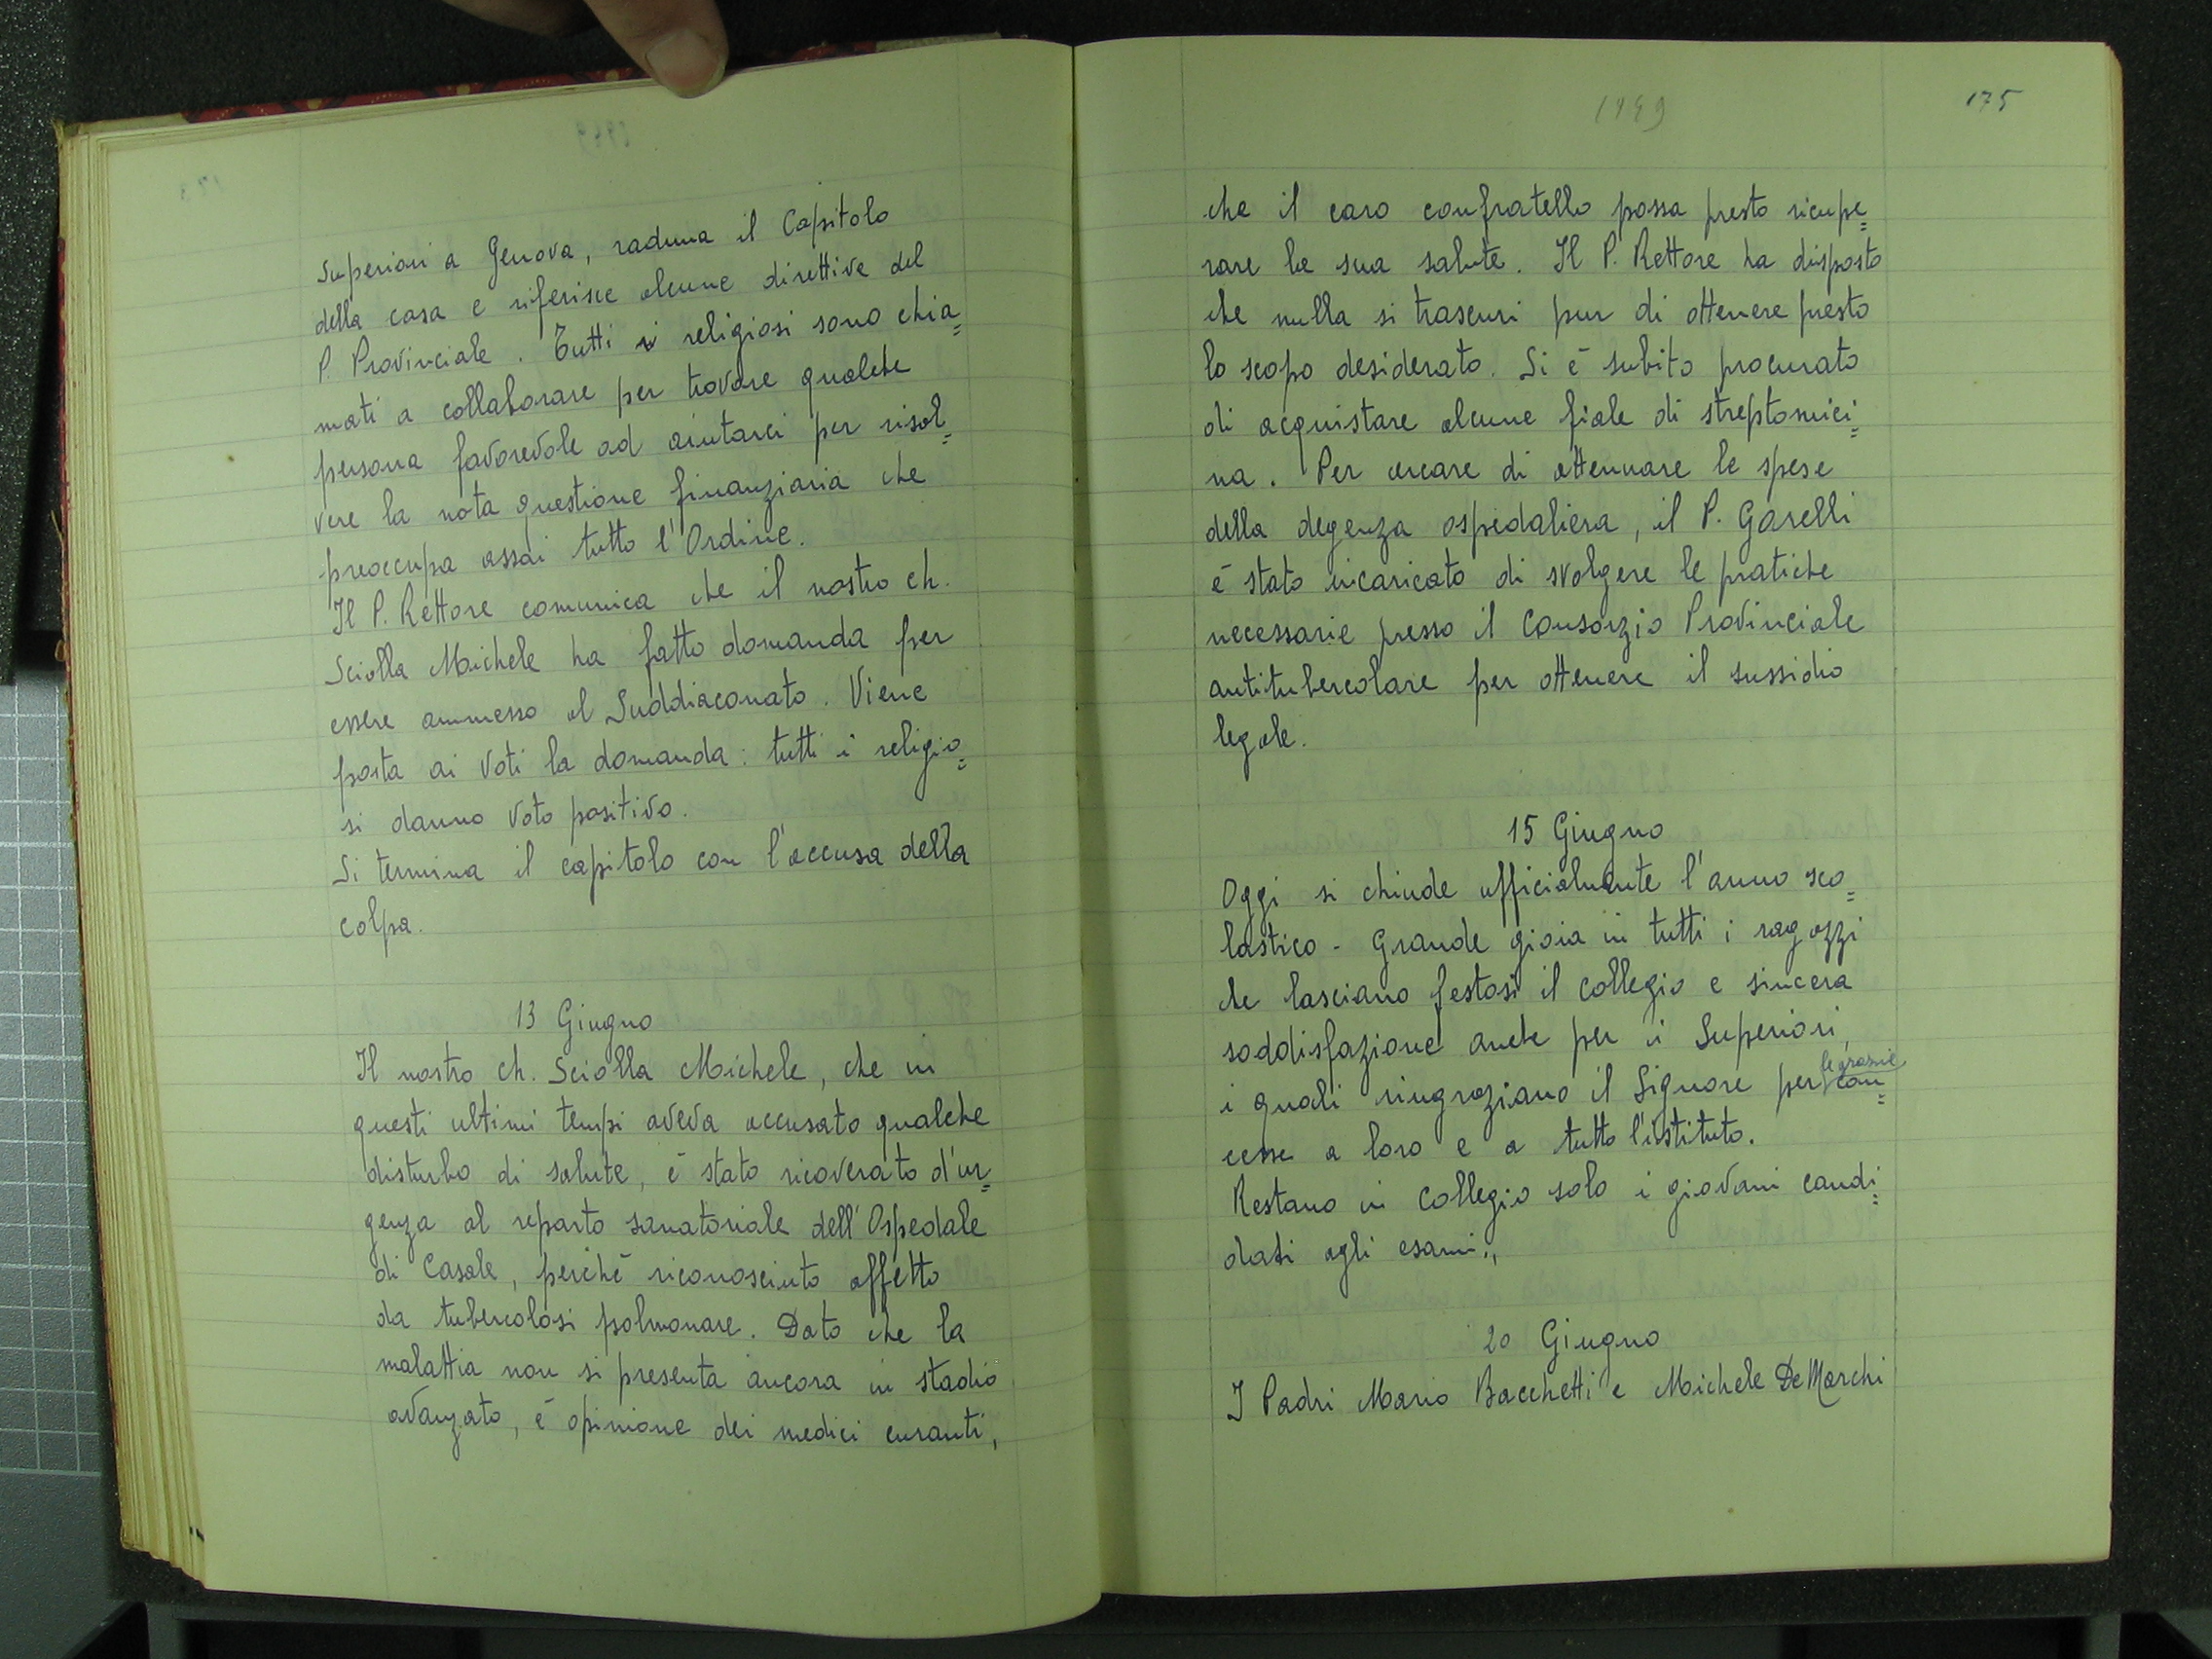 Superiori a Genova, raduna il Capitolo
della casa e riferisce alcune direttive del
P. Provinciale. Tutti i religiosi sono chia=
mati a collaborare per trovare qualche
persona favorevole ad aiutarci per risol=
vere la nota questione finanziaria che
preoccupa assai tutto l'Ordine.
Il P. Rettore comunica che il nostro ch.
Sciolla Michele ha fatto domanda per
essere ammesso al Suddiaconato. Viene
posta ai voti la domanda: tutti i religio=
si danno voto positivo.
Si termina il capitolo con l'accusa della
colpa.
13 Giugno
Il nostro ch. Sciolla Michele, che in
questi ultimi tempi aveva accusato qualche
disturbo di salute, é stato ricoverato d'ur=
genza al reparto sanatoriale dell'Ospedale
di Casale, perché riconosciuto affetto
da tubercolosi polmonare. Dato che la
malattia non si presenta ancora in stadio
avanzato, é opinione dei medici curanti,
1949
175
che il caro confratello possa presto ricupe=
rare la sua salute. Il P. Rettore ha disposto
che nulla si trascuri pur di ottenere presto
lo scopo desiderato. Si é subito procurato
di acquistare alcune fiale di streptomici=
na. Per cercare di attenuare le spese
della degenza ospedaliera, il P. Garelli
é stato incaricato di svolgere le pratiche
necessarie presso il Consorzio Provinciale
antitubercolare per ottenere il sussidio
legale.
15 Giugno
Oggi si chiude ufficialmente l'anno sco=
lastico - Grande gioia in tutti i ragazzi
che lasciano festosi il collegio e sincera
soddisfazione anche per i Superiori,
i quali ringraziano il Signore per le grazie con=
cesse a loro e a tutto l'istituto.
Restano in Collegio solo i giovani candi=
dati agli esami.,
20 Giugno
I Padri Mario Bacchetti e Michele De Marchi